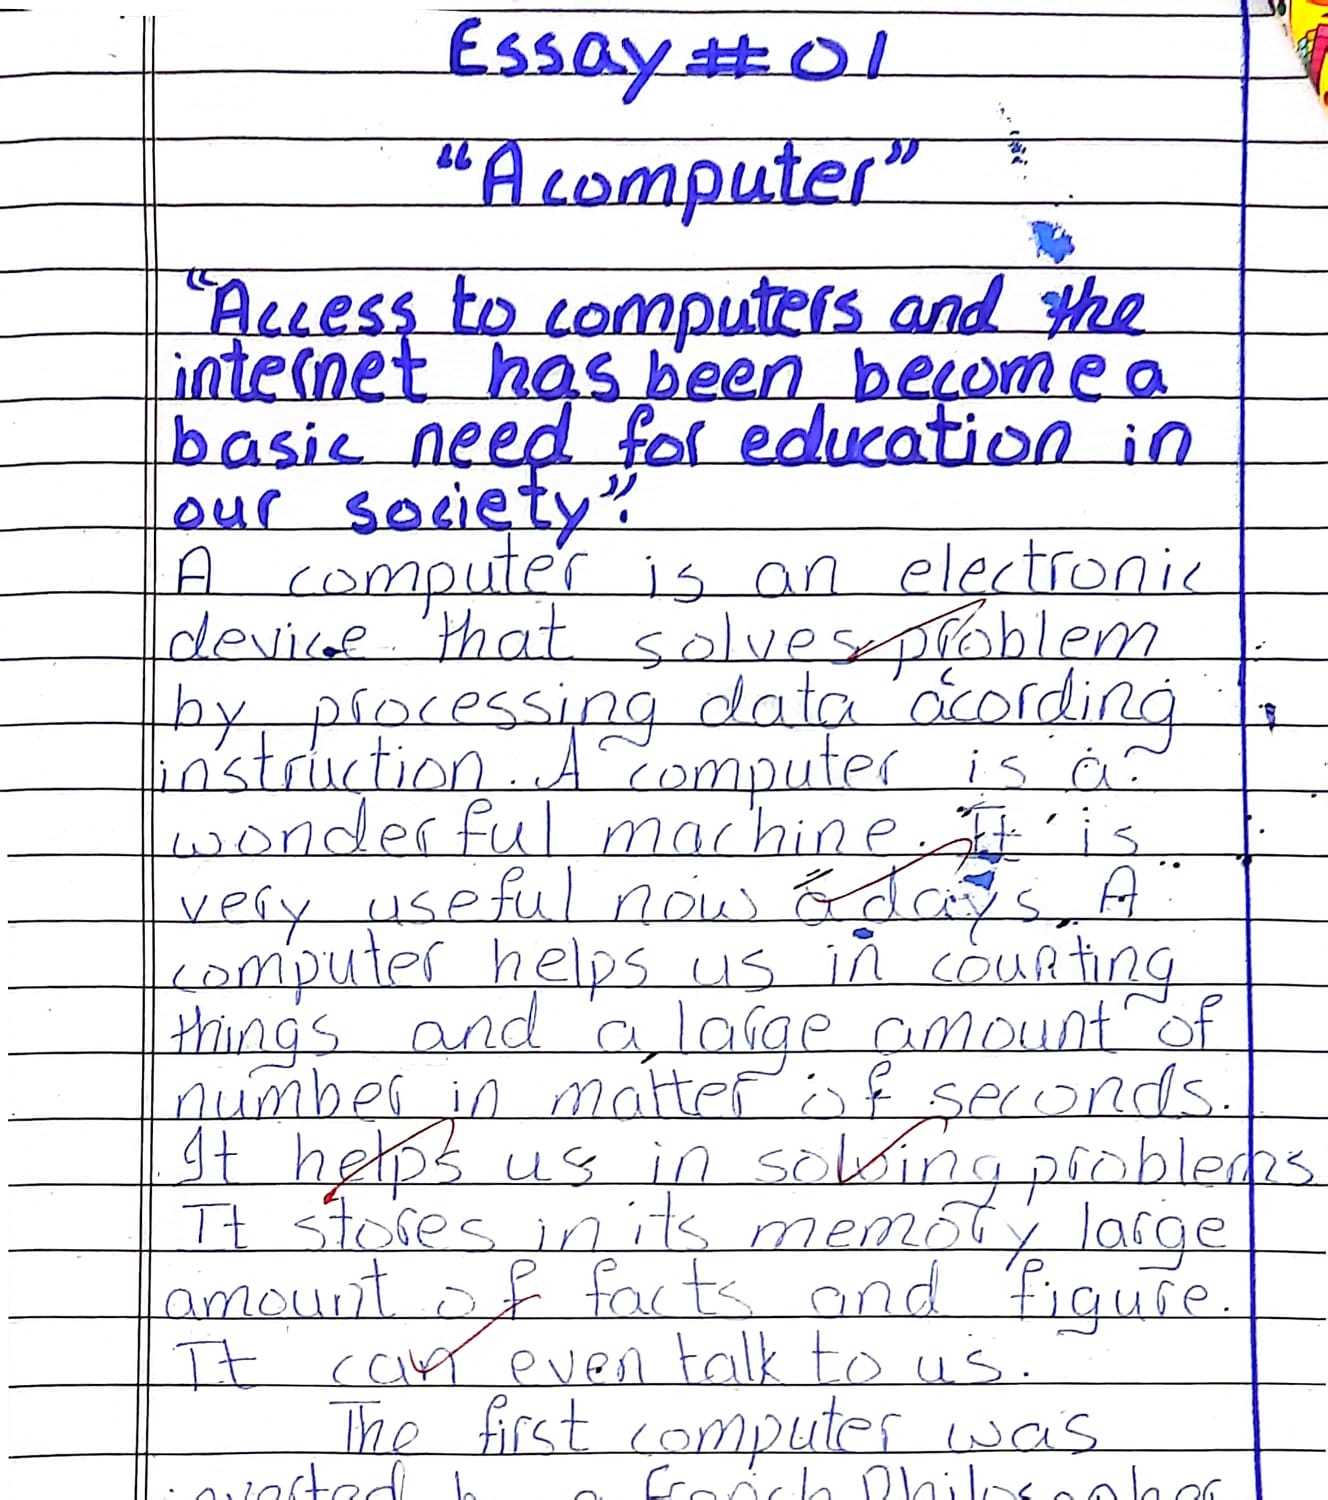 Essay # 01
"A computer"
"Access to computers and the
internet has been become a
basic need for education in
our society".
A computer is an electronic
device that solves problem
by processing data acording
instruction. A computer is a
wonderful machine. It is
very useful now a days. A
computer helps us in counting
things and a large amount of
number in matter of seconds.
It helps us in solving problems
It stores in its memory large
amount of facts and figure.
It can even talk to us.
The first computer was
invented by a French Philosopher